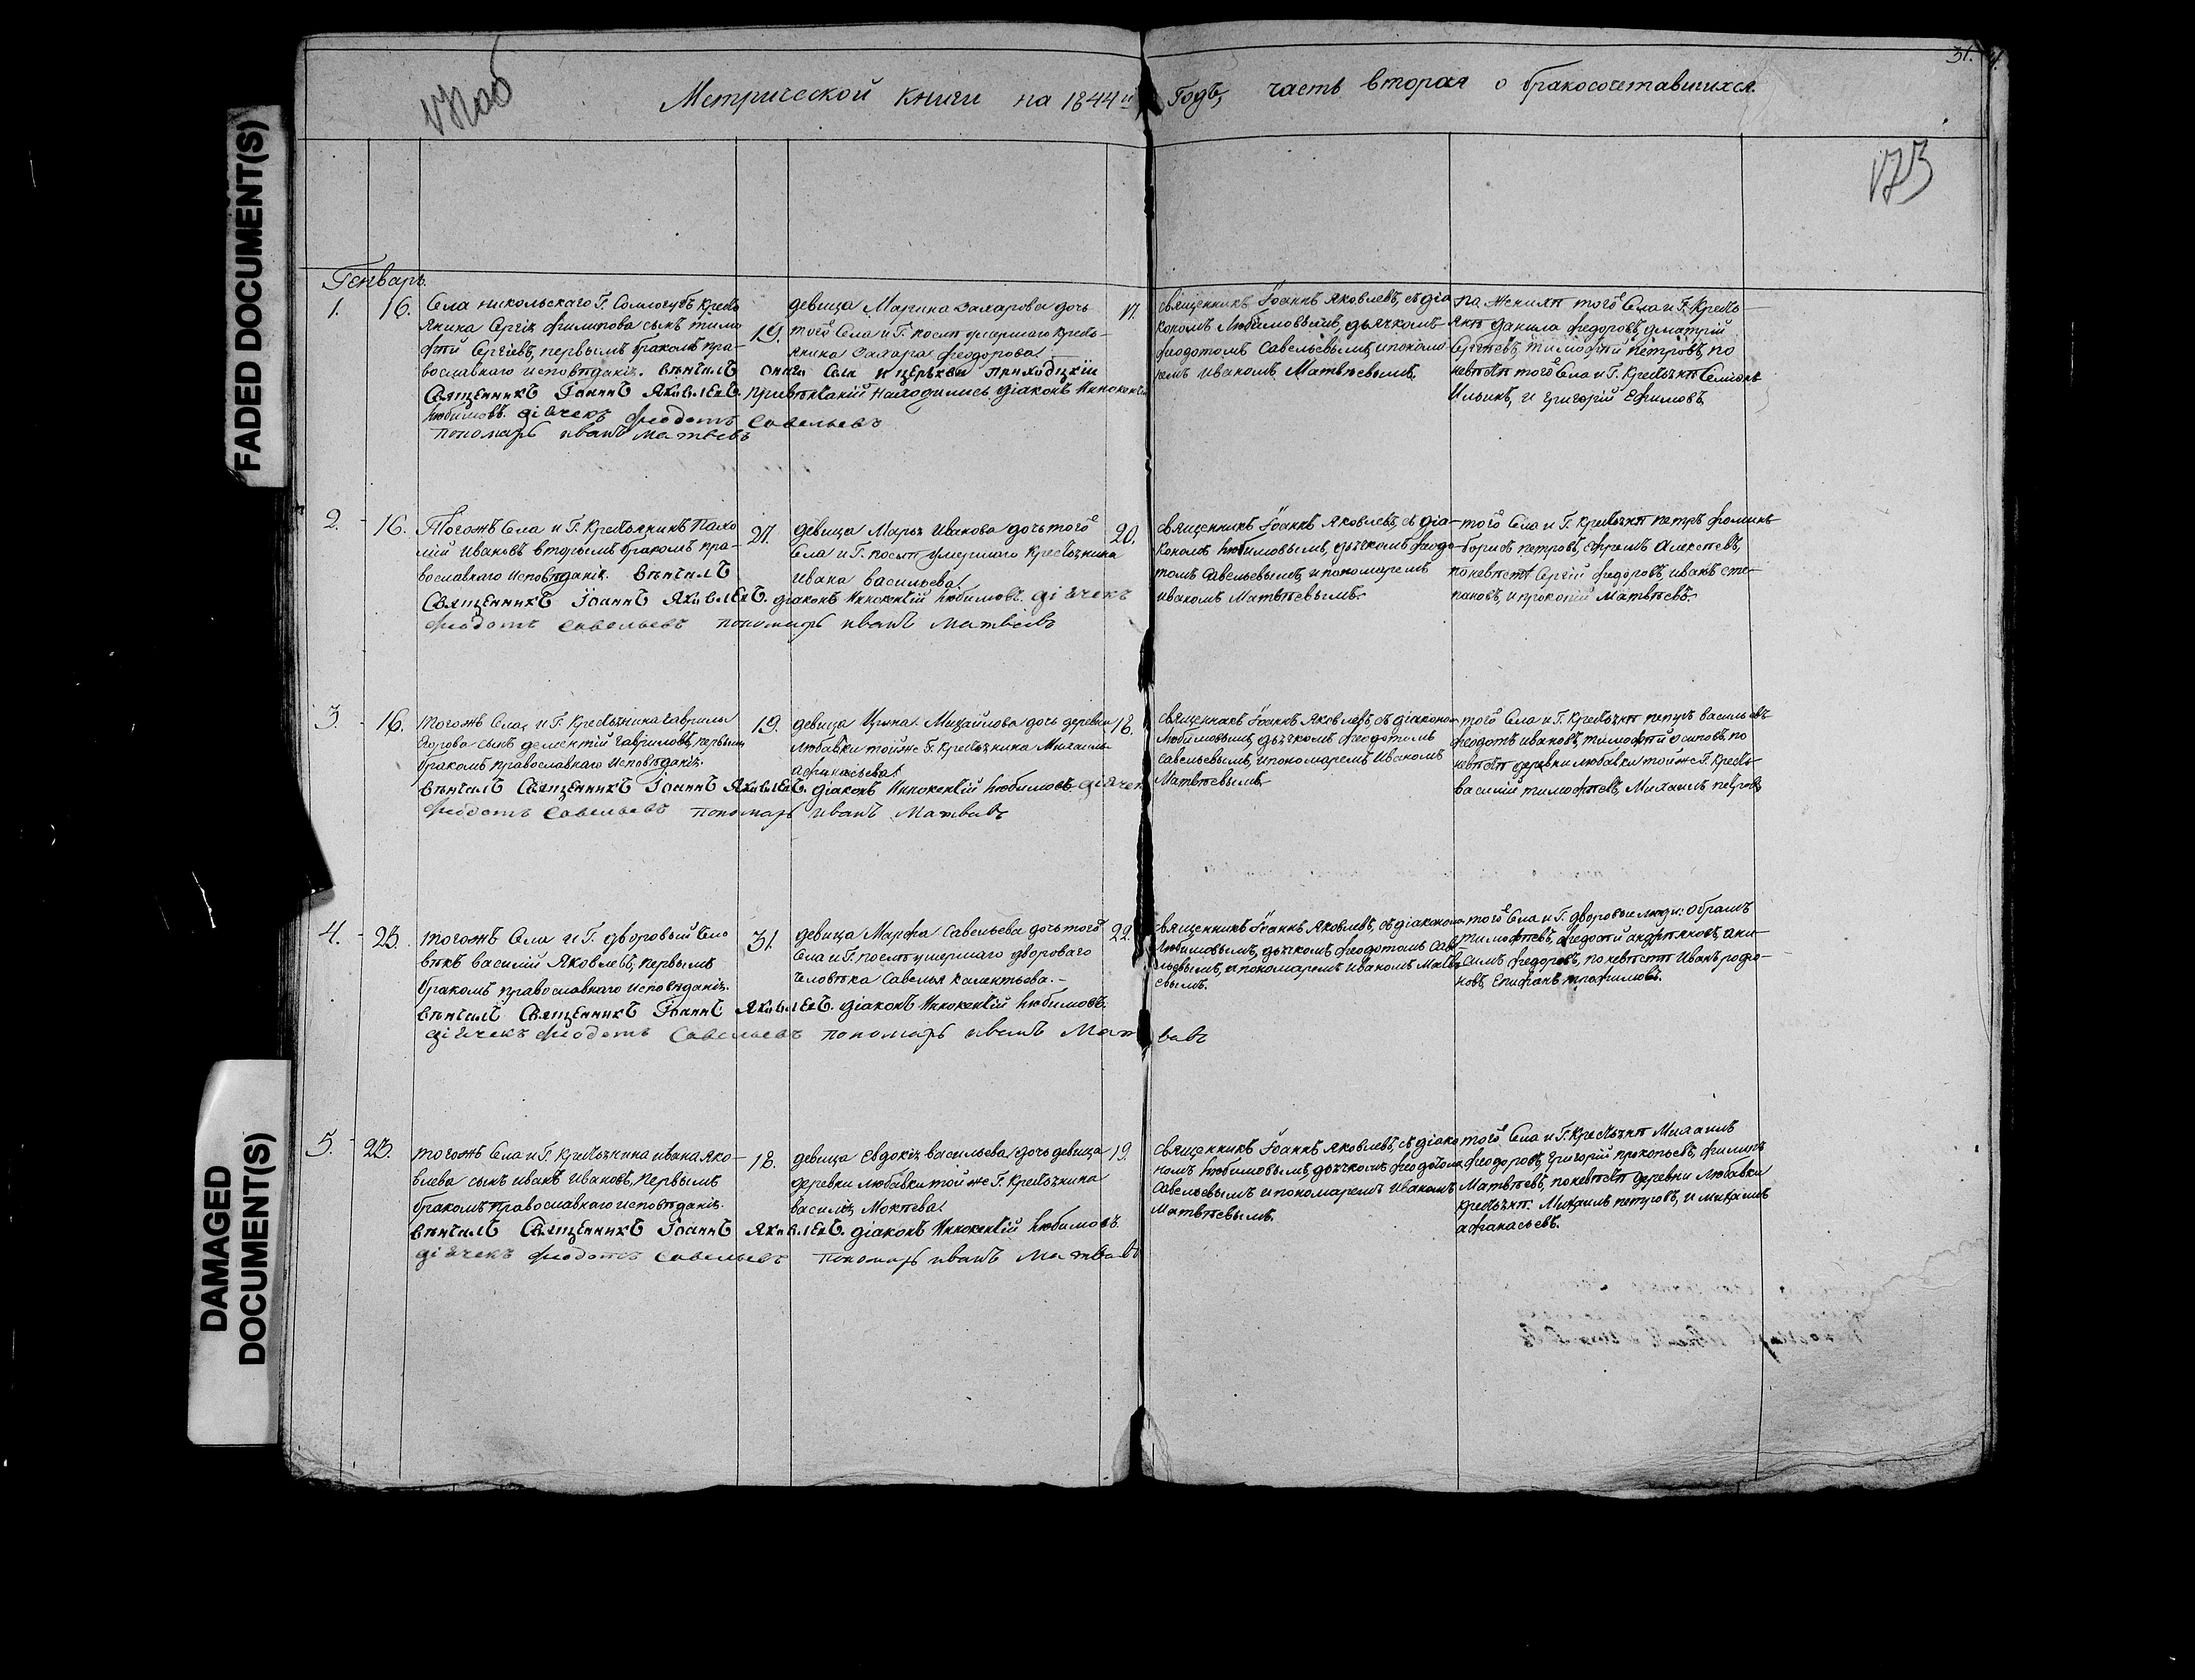 31.
Метрической книги на 1844й Годъ, часть вторая о бракосочетавшихся.
FADED DOCUMENT(S)
Генварь
1.
16.
Села никольскаго Г. Сологубъ кресть
янина Сергія филипова сынъ тимо
фѣй Сергіевъ, первымъ бракомъ пра-
вославнаго исповѣданія. вѣнчалъ онаго села и церькви приходцкій
Священникъ Іоаннъ Яковлевъ. при вѣнчаній находились діаконъ Иннокентій
Любимовъ. діячекъ феодотъ Савельевъ
пономарь иванъ матвевъ
19.
девица Марина Захарова дочь
того Села и Г. послѣ умершаго кресть-
янина Захара феодорова.
17.
священникъ Іоаннъ Яковлевъ, съ діа
кономъ Любимовымъ, дьячкомъ
феодотомъ Савельевымъ, и пономо
ремъ Иваномъ Матвѣевымъ.
по женихѣ того Села и Г. Кресть-
янѣ данила федоровъ, дмитрій
Сергѣевъ, тимофѣй петровъ, по
невѣстѣ того Села и Г. Крестьянѣ Семіонъ
Ильинъ, и григорій Ефимовъ.
2.
16.
Тогожъ Села и Г. Крестьянинъ Пахо
мій ивановъ вторымъ бракомъ пра-
вославнаго исповѣданія. вѣнчалъ
Священникъ Іоаннъ Яковлевъ. діаконъ Иннокентій Любимовъ. діячекъ
феодотъ Савельевъ пономарь иванъ матвевъ
27.
девица Марья Иванова дочь того
Села и Г. послѣ умершаго крестьянина
ивана васильева.
20.
священникъ Іоаннъ Яковлевъ, съ діа-
кономъ Любимовымъ, дьячкомъ феодо-
томъ Савельевымъ, и пономаремъ
иваномъ Матвѣевымъ.
того Села и Г. Крестьянѣ петръ фоминъ
борисъ петровъ, Ефремъ Алексѣевъ,
по невѣстѣ Сергій федоровъ, иванъ сте-
пановъ, и прокопій Матвѣевъ.
3.
16.
тогожъ Села, и Г. Крестьянина гаврилы
Егорова сынъ дементій гавриловъ, первымъ
бракомъ православнаго исповѣданія.
вѣнчалъ Священникъ Іоаннъ Яковлевъ. діаконъ Иннокентій Любимовъ. діячекъ
феодотъ Савельевъ пономарь иванъ матвевъ
19.
девица Ирина Михайлова дочь деревни
Любавки тойже Г. Крестьянина Михаила
афанасьева.
18.
священникъ Іоаннъ Яковлевъ, съ діакономъ
Любимовымъ, дьячкомъ феодотомъ
Савельевымъ, и пономаремъ Иваномъ
Матвѣевымъ.
того Села и Г. Крестьянѣ петръ васильевъ
феодотъ ивановъ, тимофѣй осиповъ, по
невѣстѣ деревни любавки тойже Г. Кресть-
василій тимофѣевъ, Михаилъ петровъ,
4.
23.
тогожъ Села и Г. дворовый чело
вѣкъ василій Яковлевъ, первымъ
бракомъ православнаго исповѣданія.
вѣнчалъ Священникъ Іоаннъ Яковлевъ. діаконъ Иннокентій Любимовъ.
діячекъ феодотъ Савельевъ пономарь иванъ Матвевъ
31.
девица Марфа Савельева дочь того
Села и Г. послѣ умершаго двороваго
человѣка Савелья Калентьева.
22.
священникъ Іоаннъ Яковлевъ, съ діакономъ
Любимовымъ, дьячкомъ феодотомъ Саве
льевымъ, и пономаремъ иваномъ Матвѣ-
евымъ.
того Села и Г. дворовые люди: Обрамъ
тимофѣевъ, федосѣй андріяновъ, ани-
симъ федоровъ, по невѣстѣ Иванъ родіо-
новъ, Епифанъ трофимовъ.
DAMAGED
DOCUMENT(S)
5.
23.
тогожъ Села и Г. Крестьянина ивана яко-
влева сынъ иванъ Ивановъ, первымъ
бракомъ православнаго исповѣданія.
вѣнчалъ Священникъ Іоаннъ Яковлевъ. діаконъ Иннокентій Любимовъ.
діячекъ феодотъ Савельевъ пономарь иванъ матвевъ
18.
девица Евдокія васильева дочь девица
деревни любавки тойже Г. Крестьянина
василія Мокѣева.
19.
священникъ Іоаннъ Яковлевъ, съ діако
номъ Любимовымъ, дьячкомъ феодотомъ
Савельевымъ и пономаремъ Иваномъ
Матвѣевымъ.
того Села и Г. Крестьянѣ Михаилъ
феодоровъ, григорій прокопьевъ, филипъ
Матвѣевъ, по невѣстѣ деревни любавки
крестьянѣ: Михаилъ петровъ, и михаилъ
афанасьевъ.